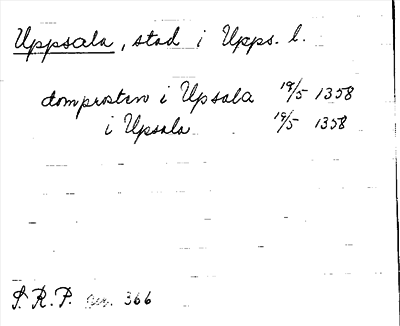 Uppsala, stad i Upps. l.
domprosten i Upsala 19/5 1358
i Upsala 19/5 1358
S. R. P. nr. 366